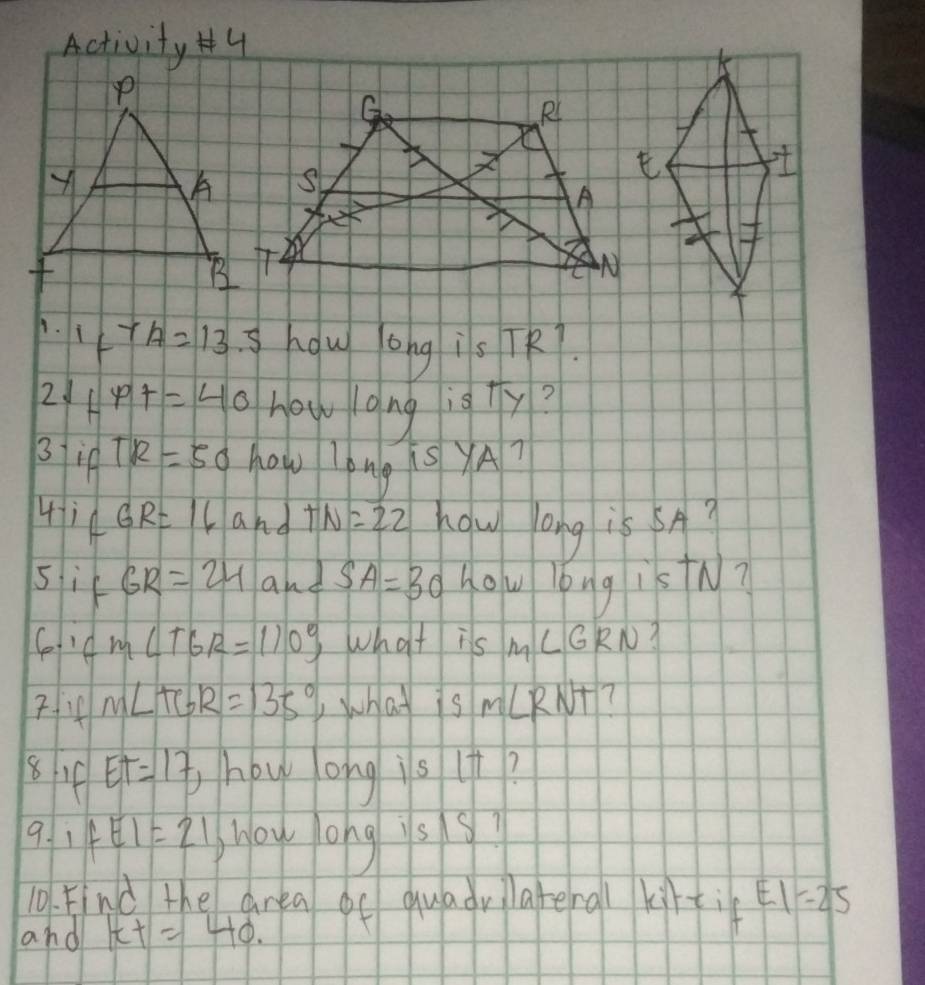 Activity #4
P
G R K
Y A S A E I
T R T N T
1. if YA=13.5 how long is TR?
2. if PT=40 how long is TY?
3. if TR=50 how long is YA?
4. if GR=16 and TN=22 how long is SA?
5. if GR=24 and SA=30 how long is TN?
6. if m∠TGR=110°, what is m∠GRN?
7. if m∠TGR=135°, what is m∠RNT?
8. if ET=17, how long is IT?
9. if EI=21, how long is IS?
10. Find the area of quadrilateral kite if EI=25
and kt=40.